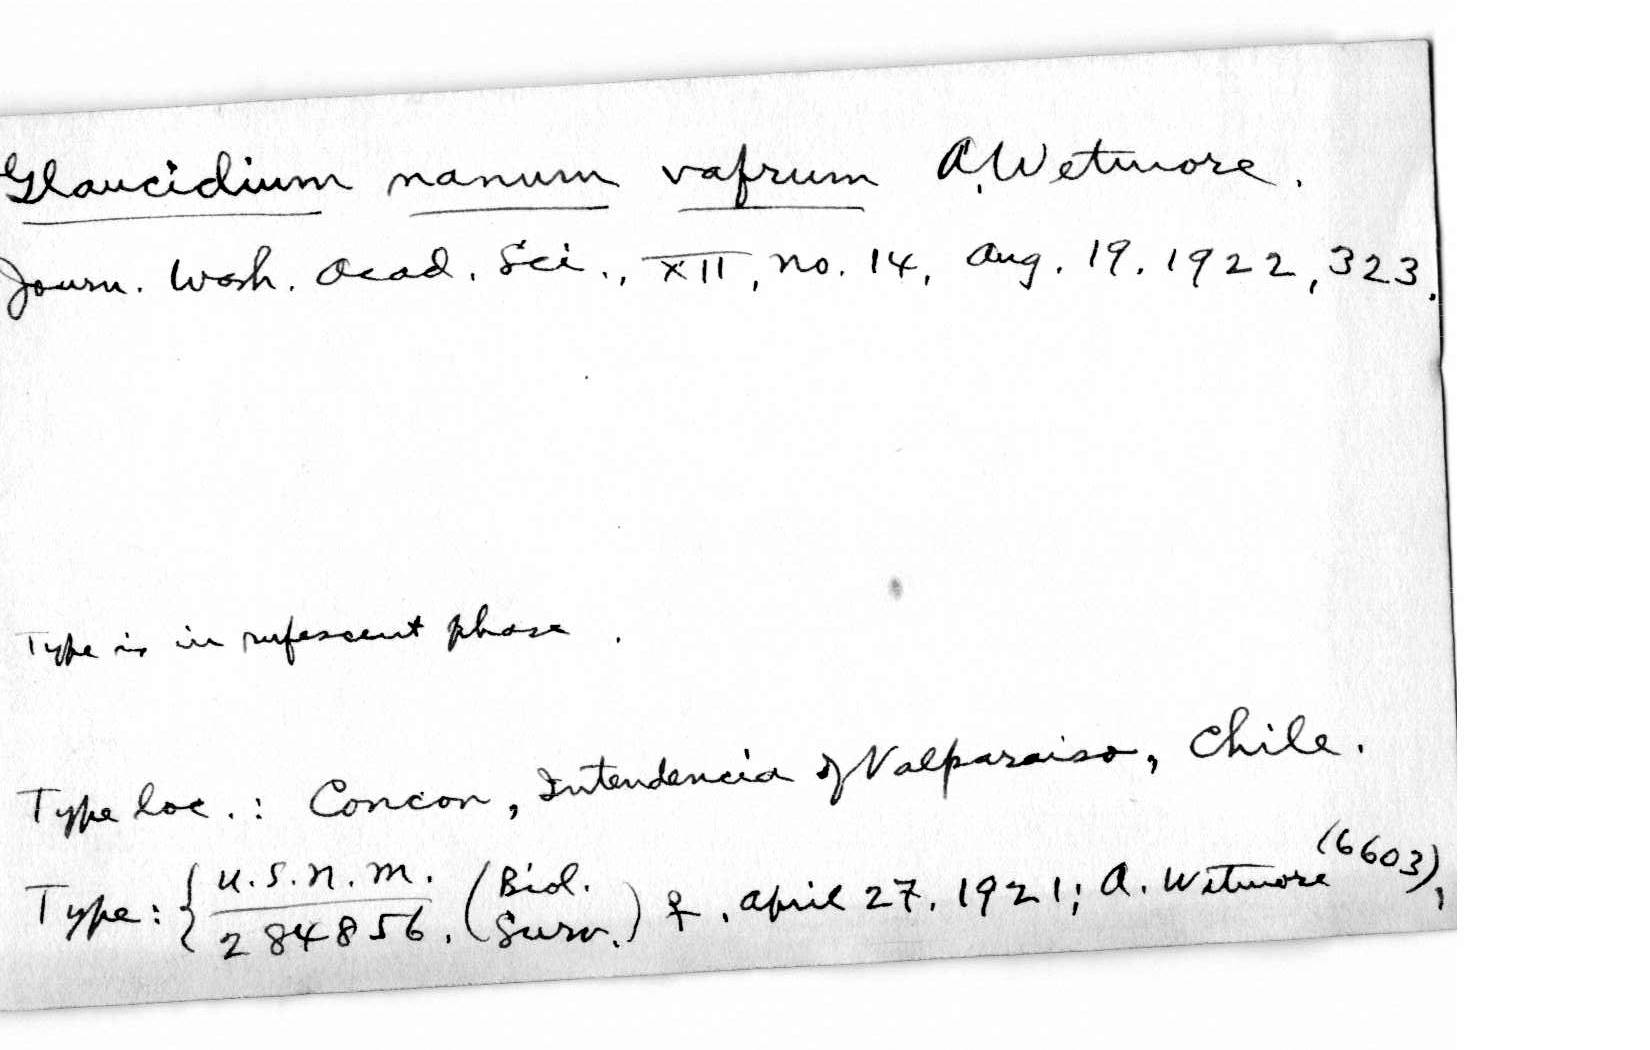 Glaucidium nanum vafrum A. Wetmore.
Journ. Wash. Acad. Sci., XII, no. 14, Aug. 19, 1922, 323.
Type is in rufescent phase.
Type loc.: Concon, Intendencia of Valparaiso, Chile.
Type: { U.S.N.M. 284856. (Biol. Surv.) ♀, April 27, 1921; A. Wetmore (6603),